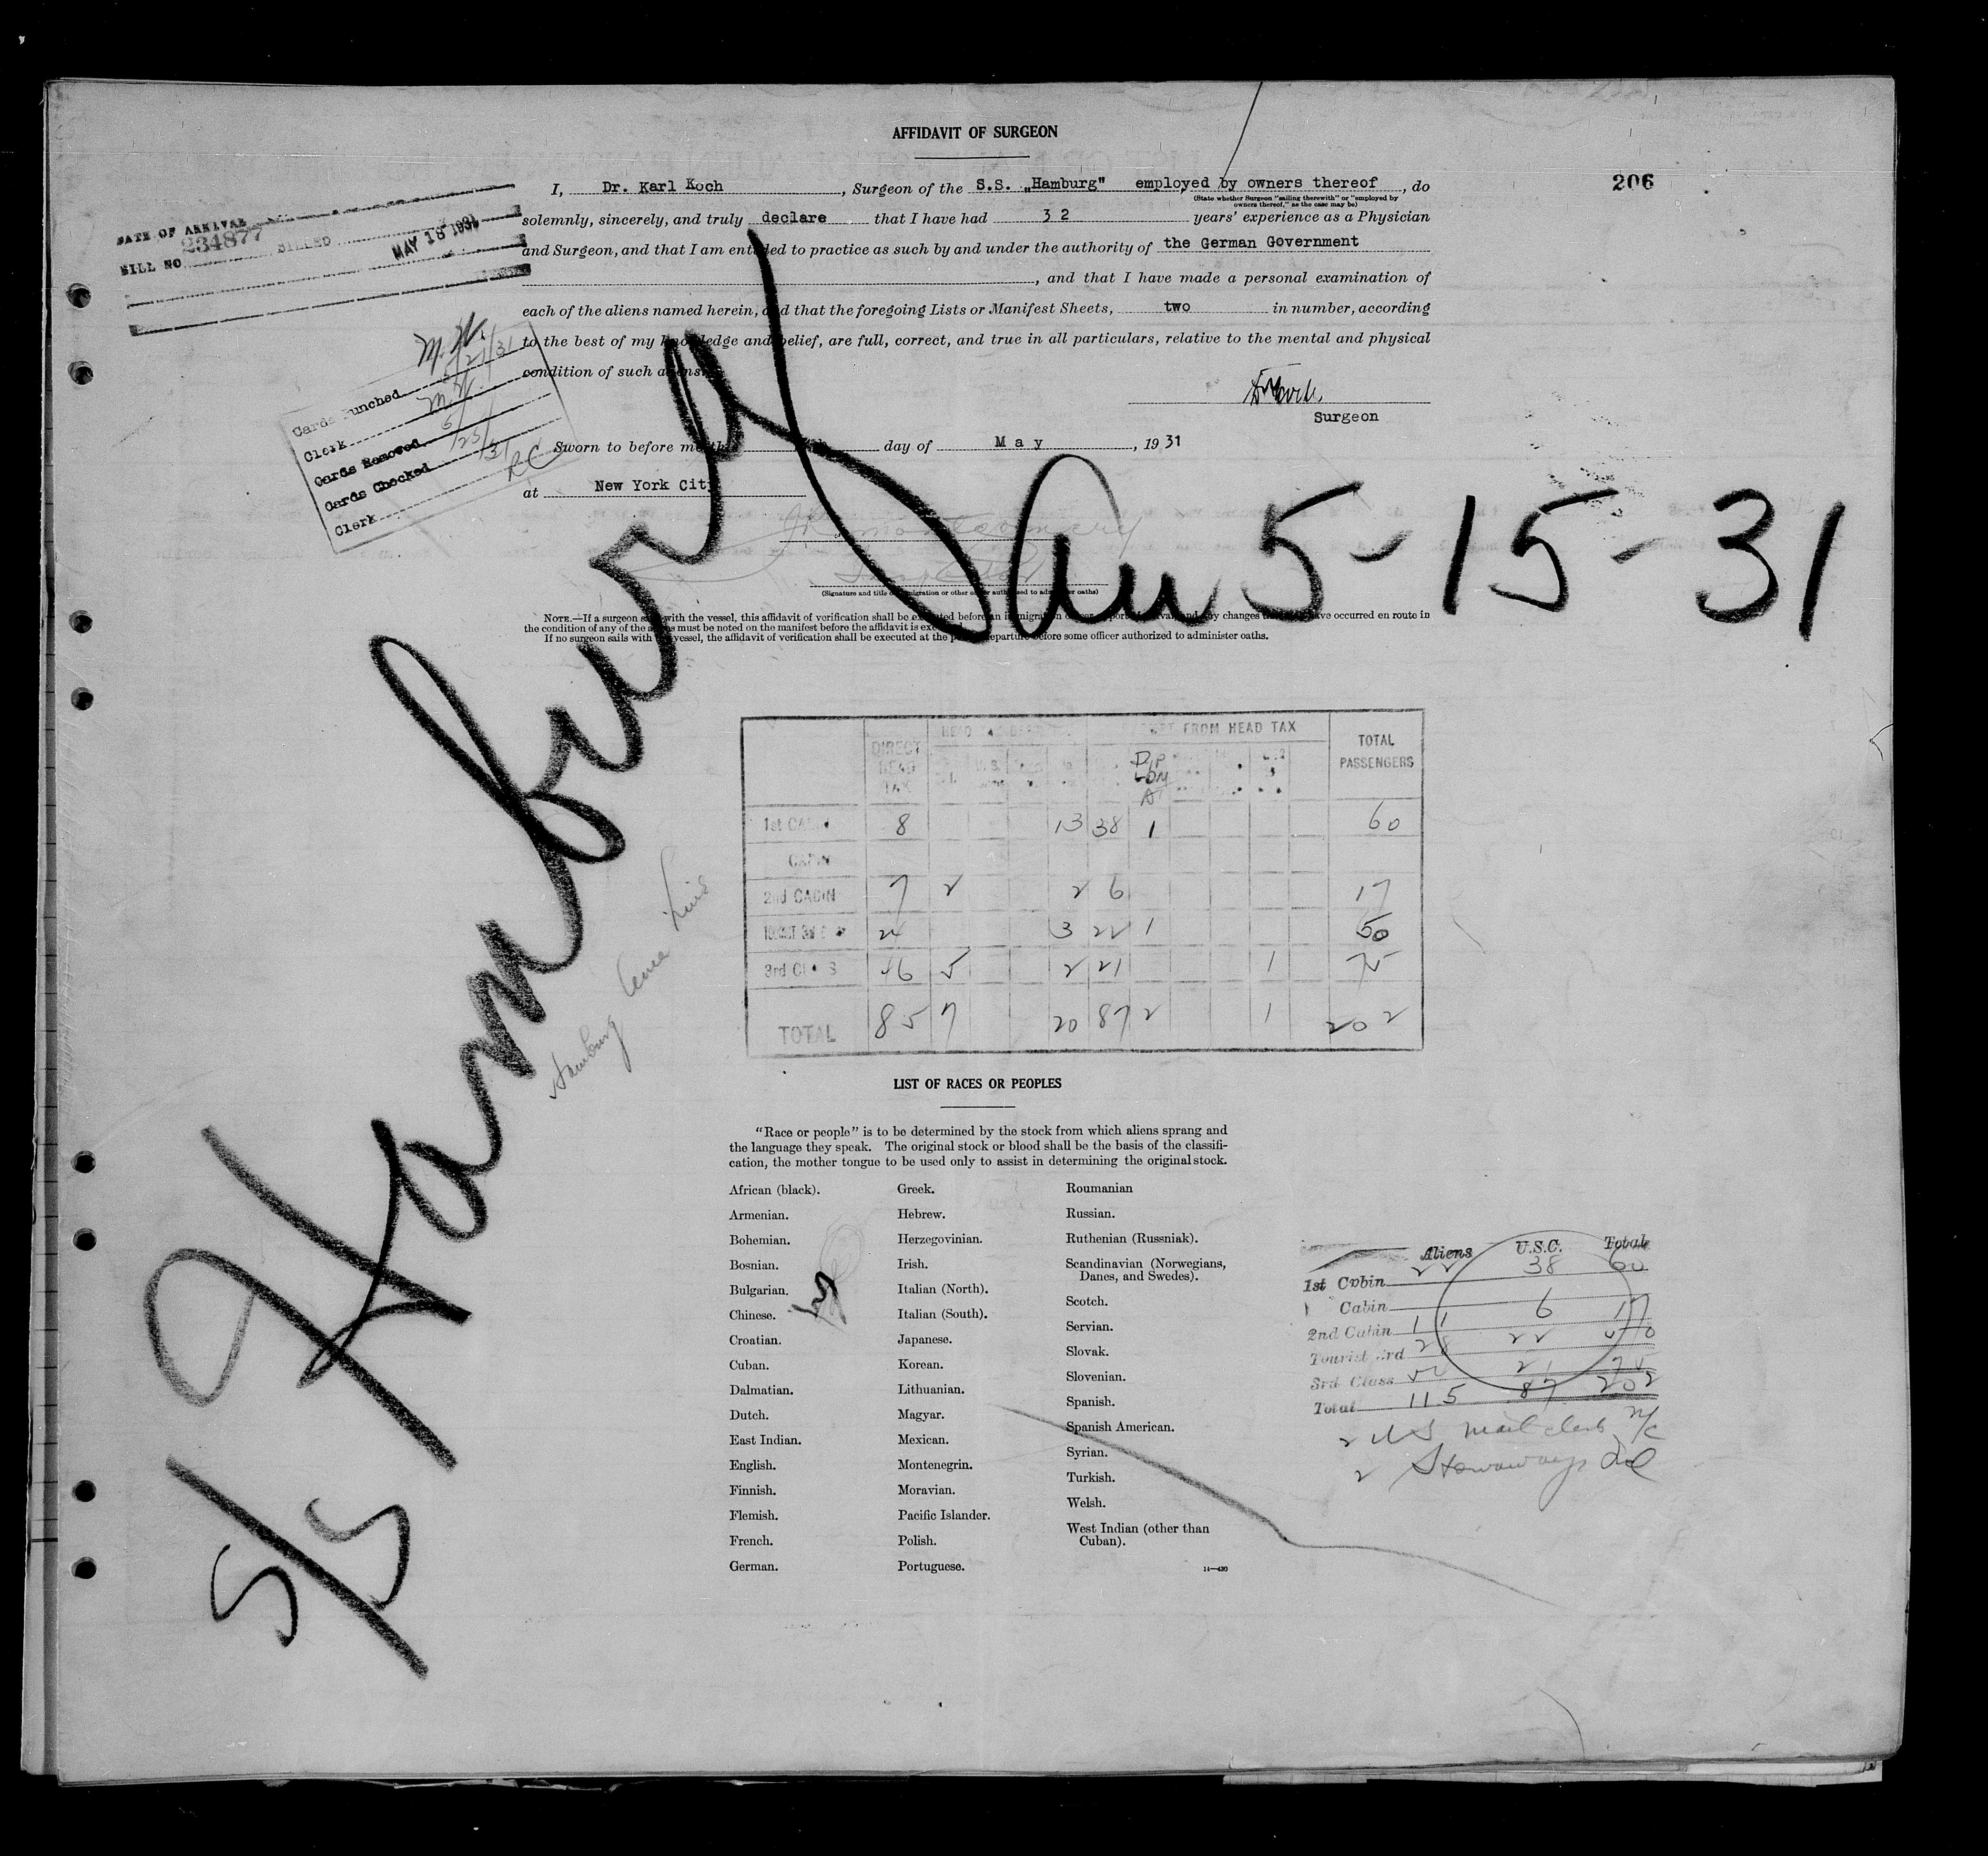 AFFIDAVIT OF SURGEON
206
I, Dr. Karl Koch, Surgeon of the S.S. „Hamburg" employed by owners thereof, do
(State whether Surgeon "sailing therewith" or "employed by
owners thereof," as the case may be)
solemnly, sincerely, and truly declare that I have had 32 years' experience as a Physician
and Surgeon, and that I am entitled to practice as such by and under the authority of the German Government
, and that I have made a personal examination of
each of the aliens named herein, and that the foregoing Lists or Manifest Sheets, two in number, according
to the best of my knowledge and belief, are full, correct, and true in all particulars, relative to the mental and physical
condition of such aliens.
Surgeon
Sworn to before me this day of May, 1931
at New York City
(Signature and title of immigration or other officer authorized to administer oaths)
NOTE.—If a surgeon sails with the vessel, this affidavit of verification shall be executed before an immigration officer at port of arrival, and any changes that have occurred en route in
the condition of any of the aliens must be noted on the manifest before the affidavit is executed.
If no surgeon sails with the vessel, the affidavit of verification shall be executed at the port of departure before some officer authorized to administer oaths.
DATE OF ARRIVAL
BILL NO 234877 BILLED MAY 18 1931
Cards Punched M.W. 5/21/31
Clerk M.W.
Cards Removed 5/25/31
Cards Checked
Clerk RC
S/S Hamburg
Arr 5-15-31
Hamburg Amer Line
DIRECT HEAD TAX
FROM HEAD TAX
TOTAL PASSENGERS
DIPLOMA
1st CABIN 8 13 38 1 60
CABIN
2nd CABIN 7 2 2 6 17
TOURIST 3rd 24 3 22 1 50
3rd CLASS 46 5 2 21 1 75
TOTAL 85 7 20 87 2 1 202
LIST OF RACES OR PEOPLES
"Race or people" is to be determined by the stock from which aliens sprang and
the language they speak. The original stock or blood shall be the basis of the classifi-
cation, the mother tongue to be used only to assist in determining the original stock.
African (black).
Armenian.
Bohemian.
Bosnian.
Bulgarian.
Chinese.
Croatian.
Cuban.
Dalmatian.
Dutch.
East Indian.
English.
Finnish.
Flemish.
French.
German.
Greek.
Hebrew.
Herzegovinian.
Irish.
Italian (North).
Italian (South).
Japanese.
Korean.
Lithuanian.
Magyar.
Mexican.
Montenegrin.
Moravian.
Pacific Islander.
Polish.
Portuguese.
Roumanian
Russian.
Ruthenian (Russniak).
Scandinavian (Norwegians,
Danes, and Swedes).
Scotch.
Servian.
Slovak.
Slovenian.
Spanish.
Spanish American.
Syrian.
Turkish.
Welsh.
West Indian (other than
Cuban).
14—430
Aliens U.S.C. Total
1st Cabin 22 38 60
Cabin
2nd Cabin 11 6 17
Tourist 3rd 28 22 50
3rd Class 54 21 75
Total 115 87 202
2 US mail clerks
2 Stowaways